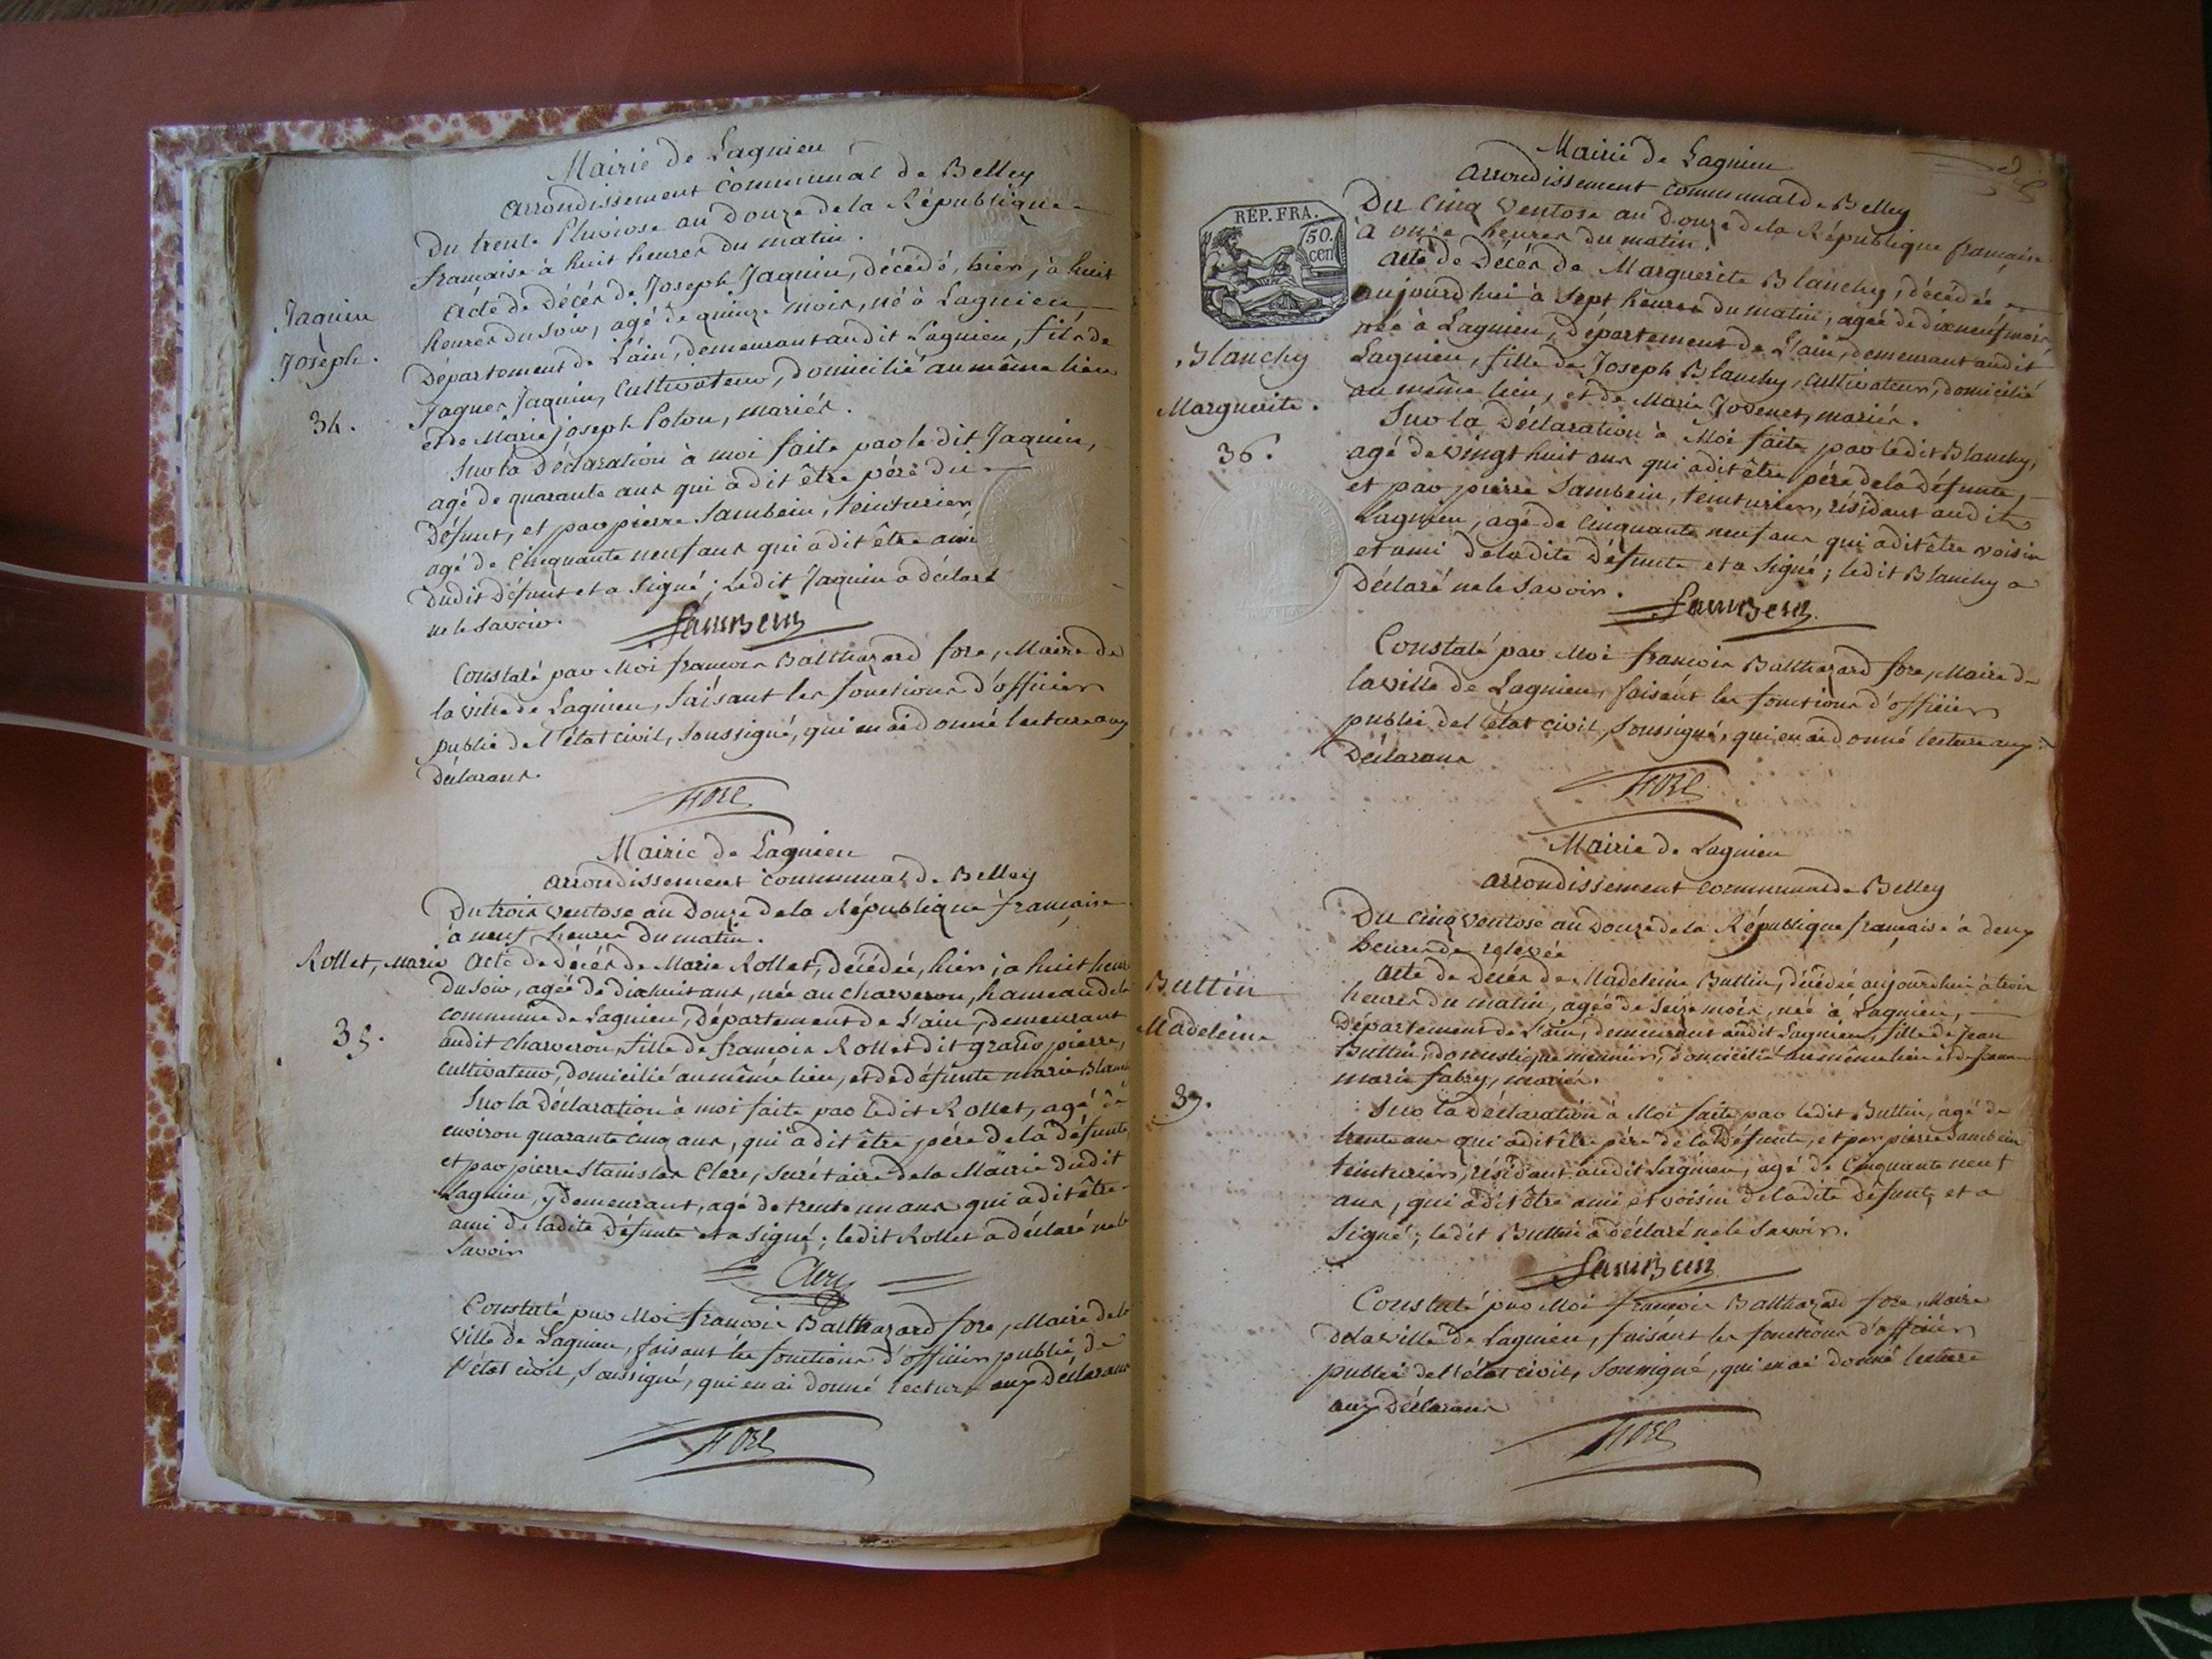 Mairie de Lagnieu
arrondissement communal de Belley
Du trente Pluviose an Douze de la République
française à huit heures du matin.
Acte de Décès de Joseph Jaquin, décédé, hier, à huit
heures du soir, agé de quinze mois, né à Lagnieu,
Département de L'ain, demeurant audit Lagnieu, fils de
Jaques Jaquin, Cultivateur, domicilié au même lieu
et de Marie joseph Poton, mariés.
Jaquin
Joseph.
34.
Sur la Déclaration à moi faite par le dit Jaquin,
agé de quarante ans qui a dit être pére du
Défunt, et par pierre Sambein, teinturier,
agé de Cinquante neuf ans qui a dit être ami
dudit Défunt et a signé; Ledit Jaquin a déclaré
ne le savoir.
Sambein
Constaté par Moi françois Balthazard fore, Maire de
la ville de Lagnieu, faisant les fonctions d'officier
public de l'état civil, soussigné, qui en ai donné lecture aux
Déclarans.
Fore
Mairie de Lagnieu
arrondissement communal de Belley
Du trois ventose an Douze de la République française
à neuf heures du matin.
Rollet, Marie
35.
Acte de décès de Marie Rollet, décédée, hier, à huit heures
du soir, agée de dixhuit ans, née au charveron, hameau de la
commune de Lagnieu, Département de L'ain, demeurant
audit charveron, fille de françois Rollet dit grand pierre,
cultivateur, domicilié au même lieu, et de défunte marie
Sur la Déclaration à moi faite par ledit Rollet, agé de
environ quarante cinq ans, qui a dit être pére de la défunte,
et par pierre Stanislas Clerc, secrétaire de la Mairie dudit
Lagnieu, y demeurant, agé de trente un ans qui a dit être
ami de ladite Défunte et a signé; ledit Rollet a déclaré ne le
savoir
Clerc
Constaté par Moi françois Balthazard fore, Maire de la
Ville de Lagnieu, faisant les fonctions d'officier public de
l'état civil, soussigné, qui en ai donné lecture aux Déclarans
Fore
Mairie de Lagnieu
arrondissement communal de Belley
REP. FRA.
50.
cen
Du Cinq Ventose an Douze de la République française
à onze heures du matin.
Acte de Décès de Marguerite Blanchy, décédée
aujourdhui à sept heures du matin, agée de dixneuf mois,
née à Lagnieu, Département de L'ain, demeurant audit
Lagnieu, fille de Joseph Blanchy, Cultivateur, domicilié
au même lieu, et de Marie Jodenet, mariés.
Blanchy
Marguerite.
36.
Sur la Déclaration à Moi faite par ledit Blanchy,
agé de vingt huit ans qui a dit être pére de la défunte,
et par pierre Sambein, teinturier, résidant audit
Lagnieu, agé de cinquante neuf ans qui a dit être voisin
et ami de ladite Défunte et a signé; ledit Blanchy a
Déclaré ne le savoir.
Sambein
Constaté par Moi françois Balthazard fore, Maire de
la ville de Lagnieu, faisant les fonctions d'officier
public de l'état civil, soussigné, qui en ai donné lecture aux
Déclarans
Fore
Mairie de Lagnieu
arrondissement communal de Belley
Du cinq ventose an Douze de la République française à deux
heures de relevée
Buttin
Madeleine
37.
Acte de Décès de Madeleine Buttin, décédée aujourdhui à trois
heures du matin, agée de seize mois, née à Lagnieu,
Département de L'ain, demeurant audit Lagnieu, fille de Jean
Buttin, domestique meunier, domicilié au même lieu et de
marie fabry, mariés.
Sur la déclaration à Moi faite par ledit Buttin, agé de
trente ans qui a dit être pére de la Défunte, et par pierre Sambein
teinturier, résidant audit Lagnieu, agé de Cinquante neuf
ans, qui a dit être ami et voisin de ladite défunte et a
signé; ledit Buttin a déclaré ne le savoir.
Sambein
Constaté par Moi françois Balthazard fore, Maire
de la ville de Lagnieu, faisant les fonctions d'officier
public de l'état civil, soussigné, qui en ai donné lecture
aux Déclarans
Fore